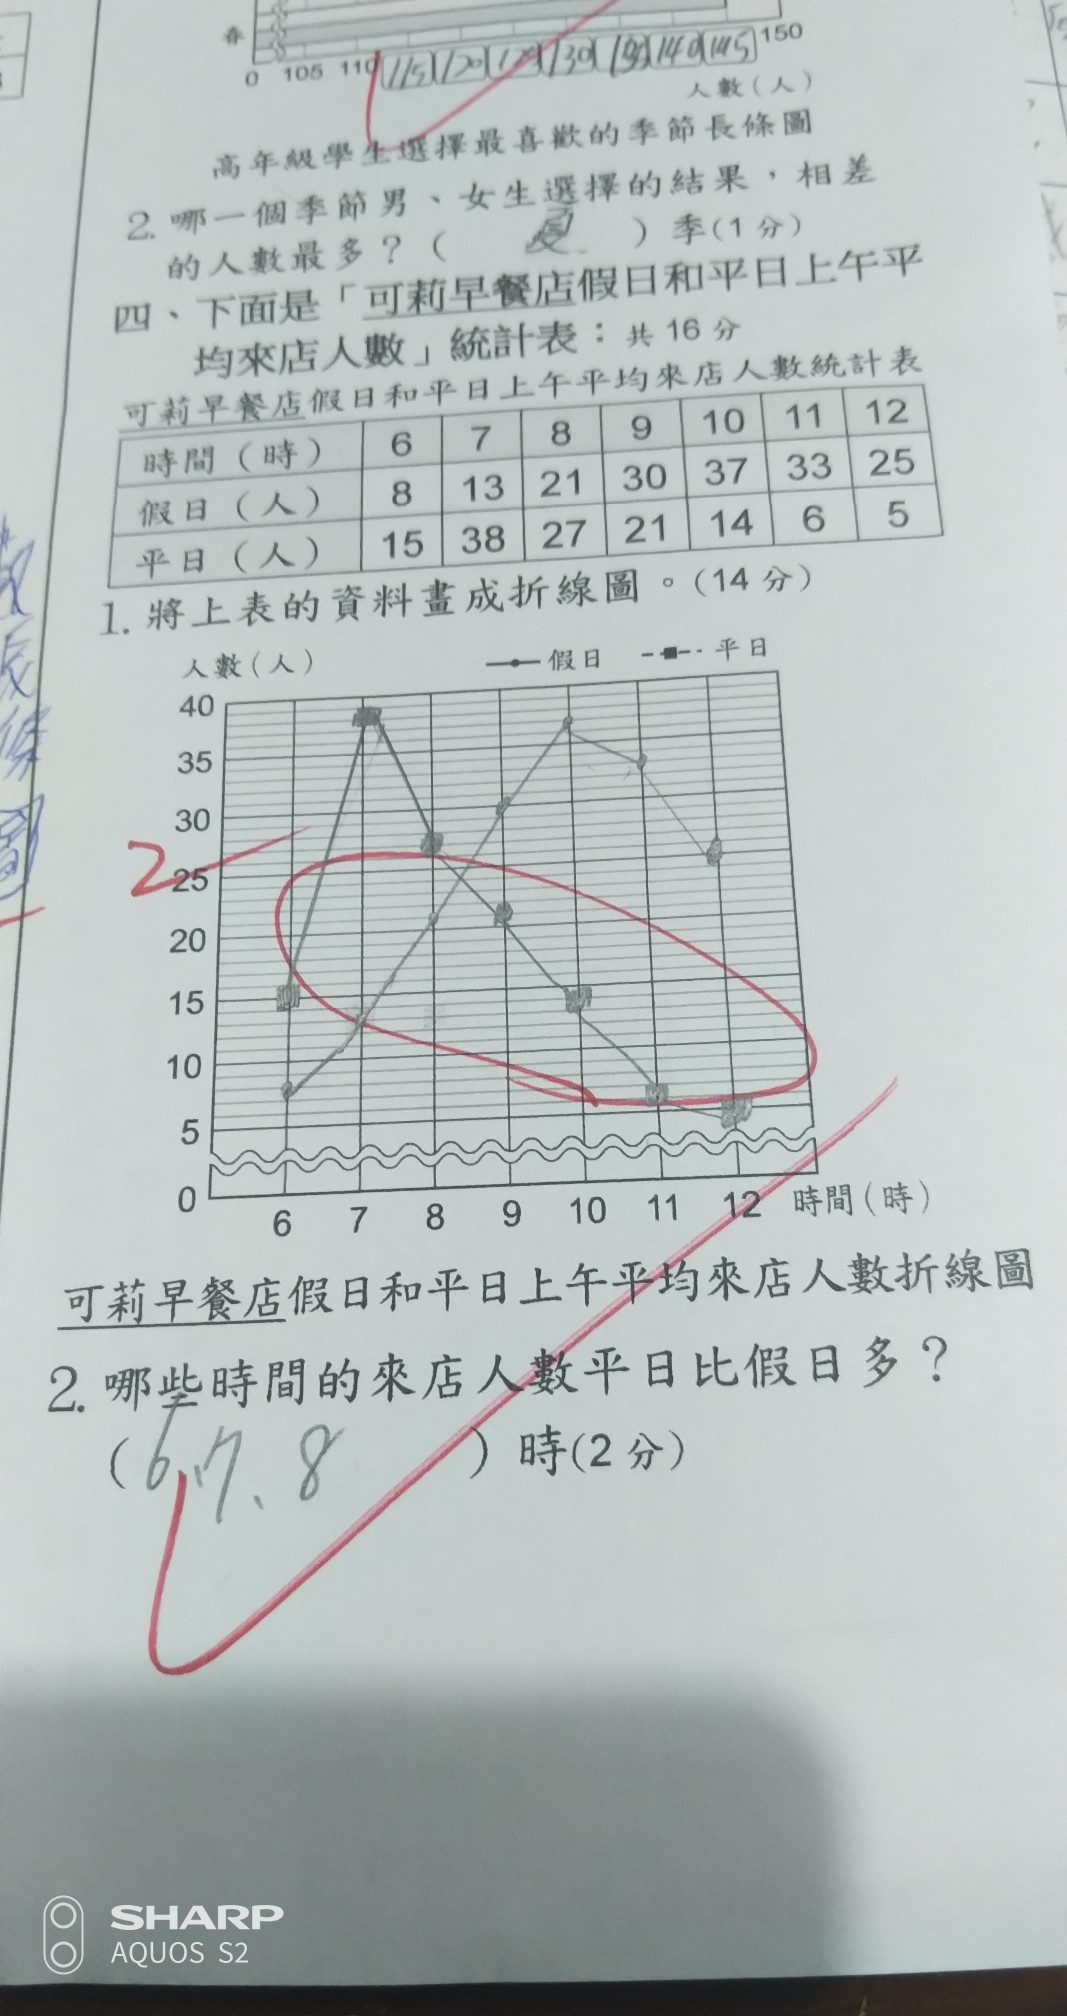 春
0 105 110 115 120 125 130 135 140 145 150
人數(人)
高年級學生選擇最喜歡的季節長條圖
2. 哪一個季節男、女生選擇的結果，相差
的人數最多？( 夏 ) 季(1 分)
四、下面是「可莉早餐店假日和平日上午平
均來店人數」統計表：共 16 分
可莉早餐店假日和平日上午平均來店人數統計表
時間(時) 6 7 8 9 10 11 12
假日(人) 8 13 21 30 37 33 25
平日(人) 15 38 27 21 14 6 5
1. 將上表的資料畫成折線圖。(14 分)
人數(人) 假日 平日
40
35
30
2
25
20
15
10
5
0
6 7 8 9 10 11 12 時間(時)
可莉早餐店假日和平日上午平均來店人數折線圖
2. 哪些時間的來店人數平日比假日多？
( 6、7、8 ) 時(2 分)
長條圖
SHARP
AQUOS S2